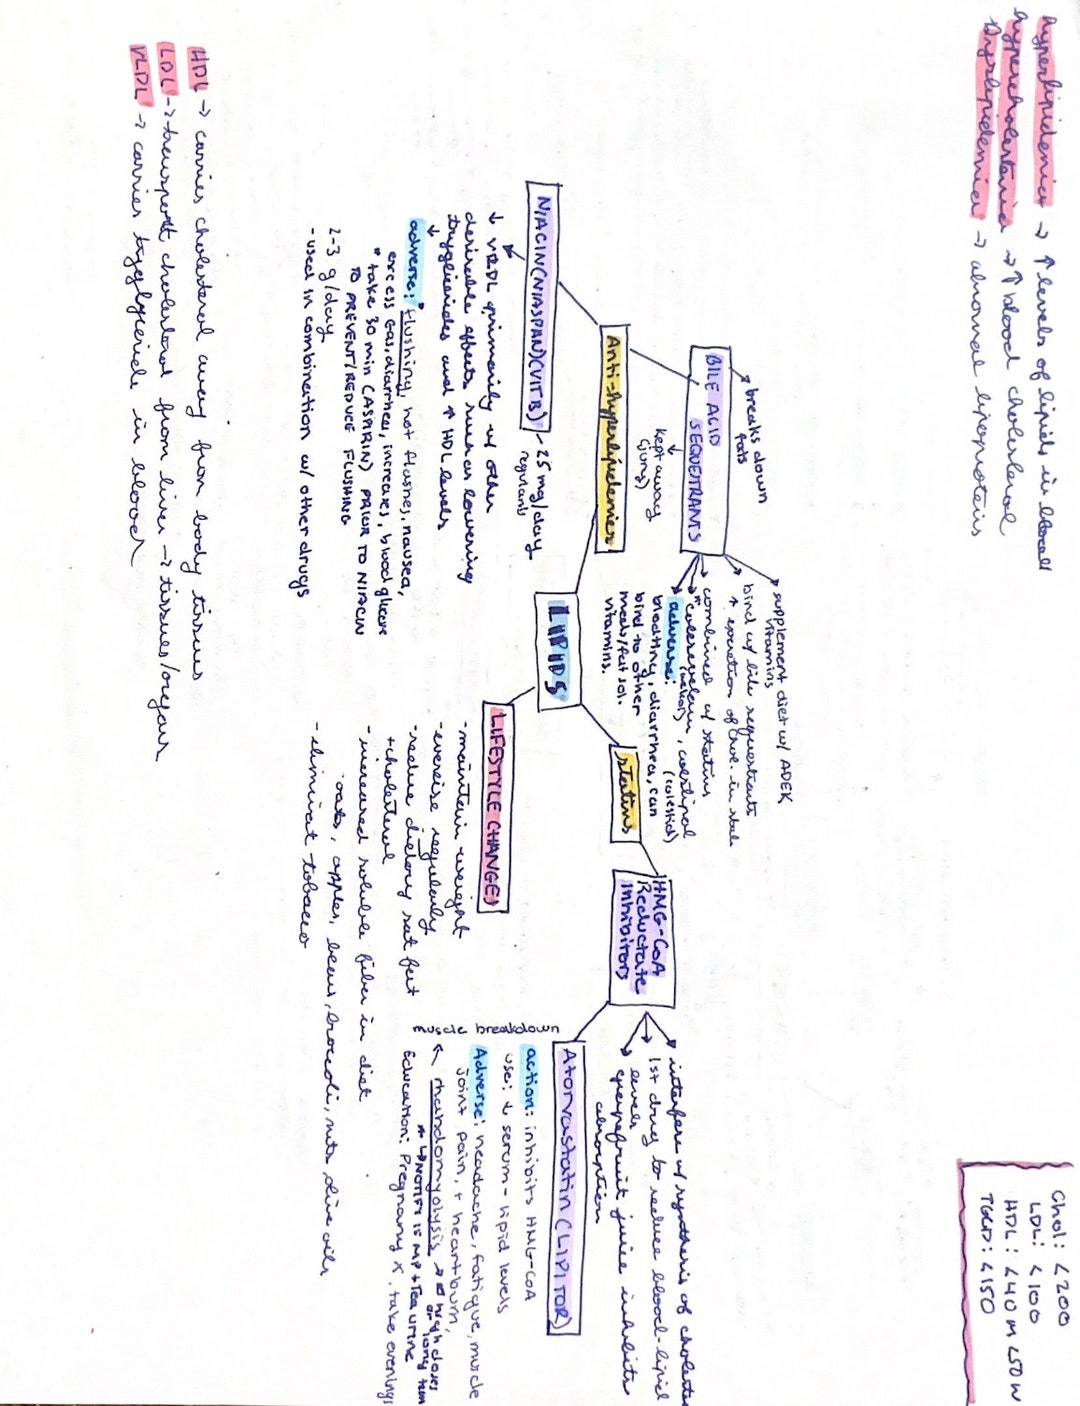 hyperlipidemia → ↑ levels of lipids in blood
hypercholesteremia → ↑ blood cholesterol
Dyslipidemia → abnormal lipoproteins
Chol: <200
LDL: <100
HDL: <40 M <50 W
TGCD: <150
breaks down
fats
BILE ACID
SEQUESTRANTS
kept away
(jung)
supplement diet w/ ADEK
vitamins
bind w/ bile sequestrants
↑ excretion of chol. in stool
combined w/ statins
colesevelam, colestipol
(welchol) (colestid)
adverse:
bloating, diarrhea, can
bind to other
meds/fat sol.
vitamins.
Anti-hyperlipidemics
NIACIN (NIASPAN) (VIT B) - 25 mg/day
regularly
↓ VLDL primarily w/ other
desirable effects such as lowering
tryglicerides and ↑ HDL levels
adverse: flushing, hot flashes, nausea,
excess gas, diarrhea, increases, blood glucose
* take 30 min (ASPIRIN) PRIOR TO NIACIN
TO PREVENT/REDUCE FLUSHING
2-3 g/day
- used in combination w/ other drugs
LIPIDS
statins
HMG-CoA
Reductate
Inhibitors
interfere w/ synthesis of cholester
1st drug to reduce blood-lipid
levels
grapefruit juice inhibits
absorption
Atorvastatin (LIPITOR)
action: inhibits HMG-CoA
use: ↓ serum-lipid levels
Adverse: headache, fatigue, muscle
joint pain, + heartburn,
muscle breakdown
← rhabdomyolysis → high doses
or long term
* ↳ NOTIFY IF MP + Tea urine
Education: Pregnancy X, take evenings
LIFESTYLE CHANGES
- maintain weight
- exercise regularly
- reduce dietary sat fat
+ cholesterol
- increased soluble fiber in diet
· oats, apples, beans, broccoli, nuts olive oils
- eliminat tobacco
HDL → carries cholesterol away from body tissues
LDL → transport cholesterol from liver → tissues/organs
VLDL → carries tryglyceride in blood